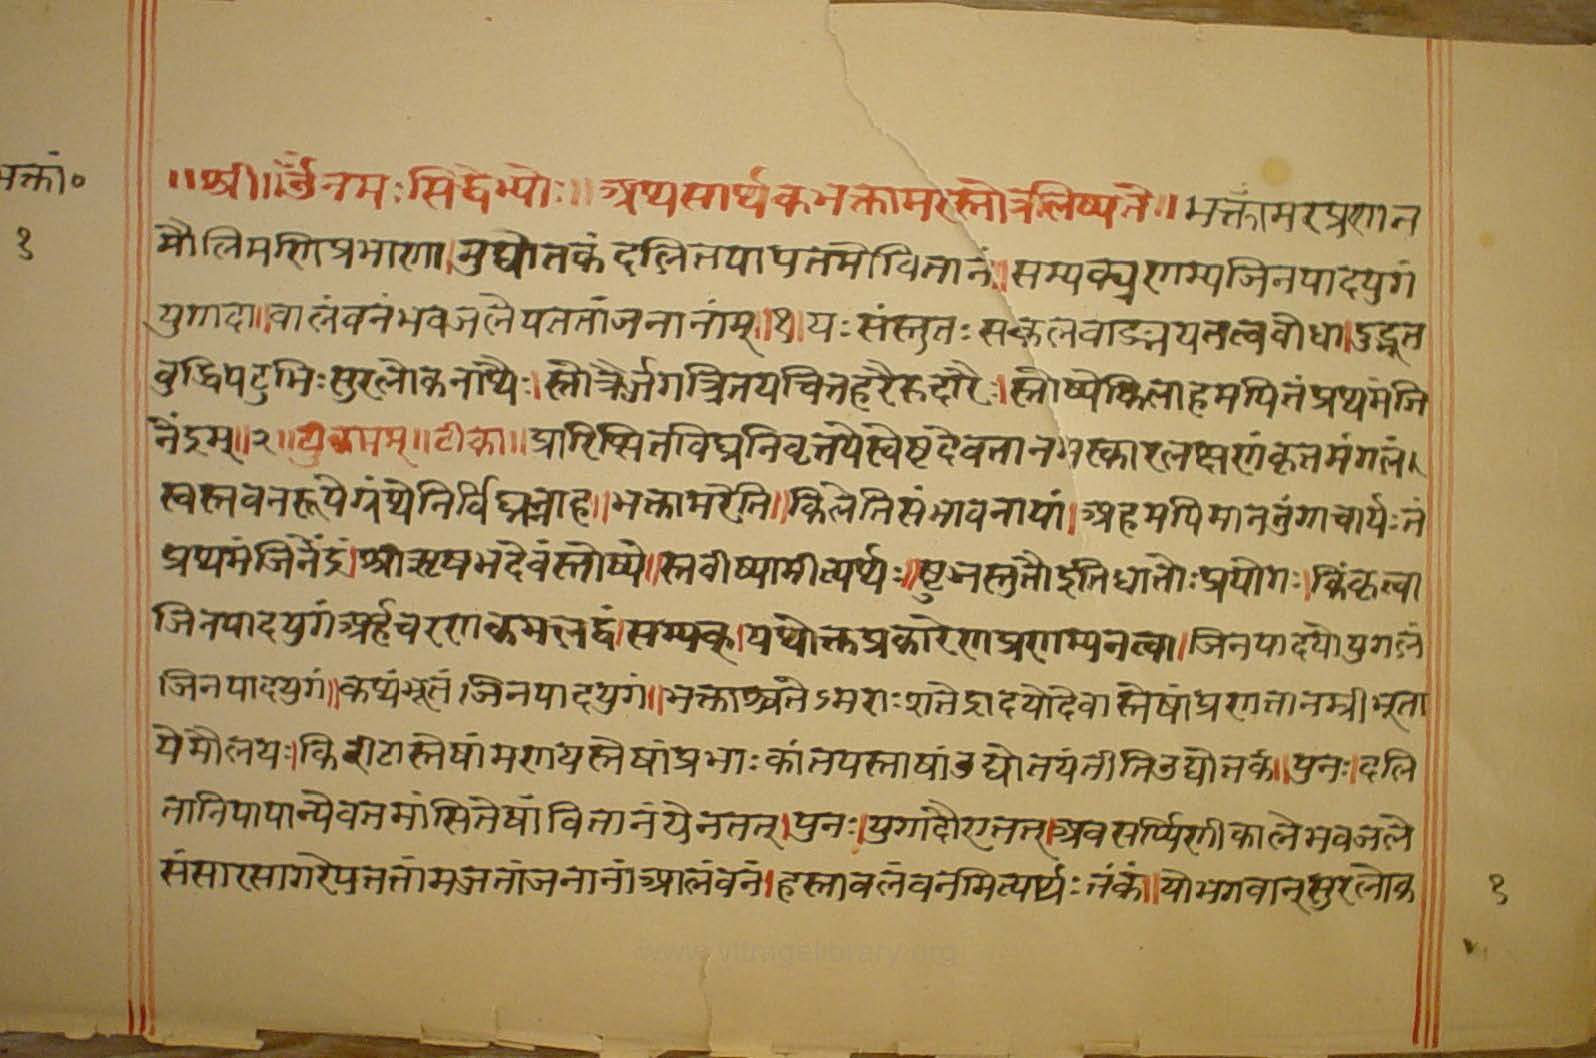 भक्तां०
१
॥श्री॥ ॐ नमः सिद्धेभ्योः॥ अथ सार्थकभक्तामरस्तोत्रलिष्यते॥ भक्तामरप्रणत
मौलिमणिप्रभाणा।मुद्योतकं दलितपापतमोवितानं॥सम्यक्प्रणम्यजिनपादयुगं
युगादा॥वालंवनंभवजलेपततांजनानांम्॥१॥यःसंस्तुतःसकलवाङ्मयतत्ववोधा।दुद्भूत
वुद्धिपटुभिःसुरलोकनाथैः।स्तोत्रैर्जगत्त्रितयचित्तहरैरुदारैः।स्तोष्येकिलाहमपितंप्रथमंजि
नेंद्रम्॥२॥युग्मम्॥टीका॥प्रारिप्सितविघ्ननिवृत्तयेस्वेष्टदेवतानमस्कारलक्षणंकृतमंगलं।
स्वस्तवनरूपेग्रंथेनिर्विघ्नत्वाह॥भक्तामरेति॥किलेतिसंभावनायां।अहमपिमानतुंगाचार्यःतं
प्रथमंजिनेंद्रं।श्रीऋषभदेवंस्तोष्ये॥स्तवीष्यामीत्यर्थः॥ष्टुञस्तुतौइतिधातोःप्रयोगः।किंकृत्वा
जिनपादयुगंअर्हच्चरणकमलद्वं।सम्यक्।यथोक्तप्रकारेणप्रणम्यनत्वा।जिनपादयोयुगलं
जिनपादयुगं॥कथंभूतं।जिनपादयुगं॥भक्ताश्चतेऽमराःशतेंद्रादयोदेवास्तेषांप्रणतानम्रीभूता
येमौलयः।किरीटास्तेषांमणयस्तेषांप्रभाःकांतयस्तासांउद्योतयंतीतिउद्योतकं॥पुनः।दलि
तानिपापान्येवतमांसितेषांवितानंयेनतत्।पुनः।युगादौएतत्।अवसर्प्पिणीकालेभवजले
संसारसागरेपततांमज्जतांजनानांआलंवनं।हस्तावलंवनमित्यर्थःतंकं॥योभगवान्सुरलोक
१
www.vitragelibrary.org